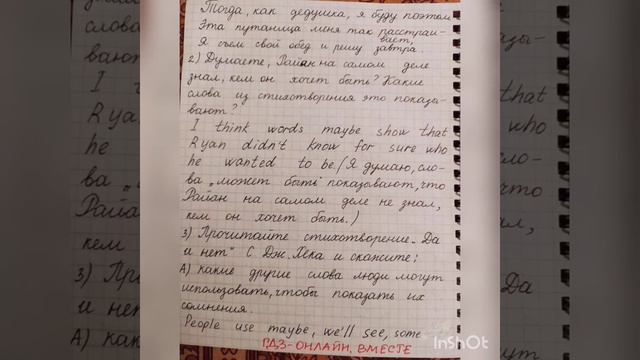 Тогда, как дедушка, я буду поэтом
Эта путаница меня так расстраи-
вает,
Я съем свой обед и решу завтра.
2) Думаете, Райан на самом деле
знал, кем он хочет быть? Какие
слова из стихотворения это показы-
вают?
I think words maybe show that
Ryan didn't know for sure who
he wanted to be. (Я думаю, сло-
ва „может быть" показывают, что
Райан на самом деле не знал,
кем он хочет быть.)
3) Прочитайте стихотворение „Да
и нет" С. Дж. Хека и скажите:
А) какие другие слова люди могут
использовать, чтобы показать их
сомнения.
People use maybe, we'll see, some
ГДЗ-ОНЛАЙН, ВМЕСТЕ
InShOt